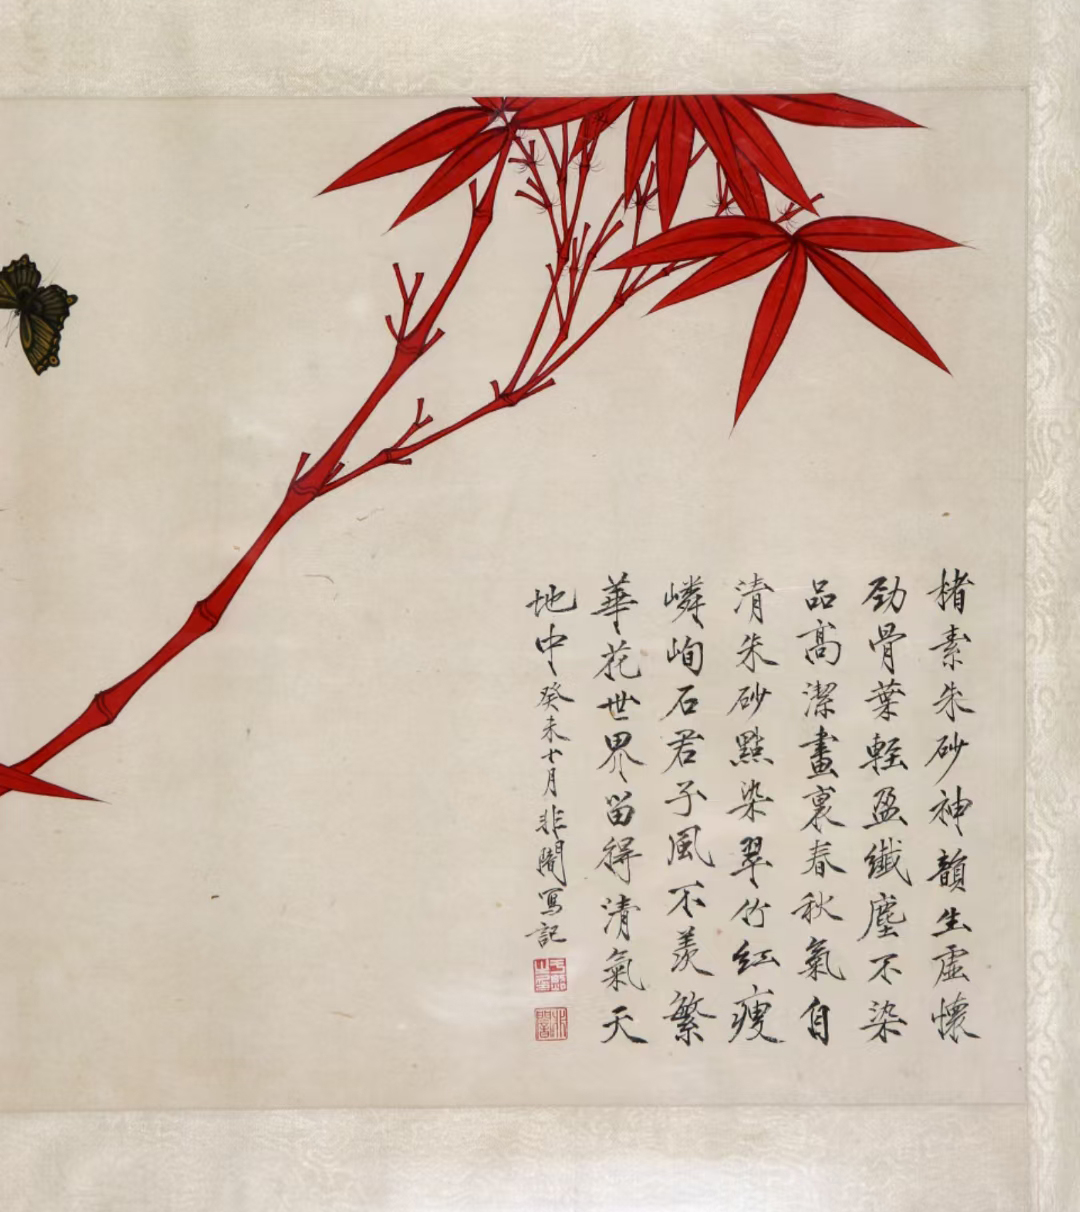 楮素朱砂神韻生虛懷
劲骨葉輕盈纖塵不染
品高潔畫裏春秋氣自
清朱砂點染翠竹紅瘦
嶙峋石君子風不羨繁
華花世界留得清氣天
地中癸未十月非闇寫記